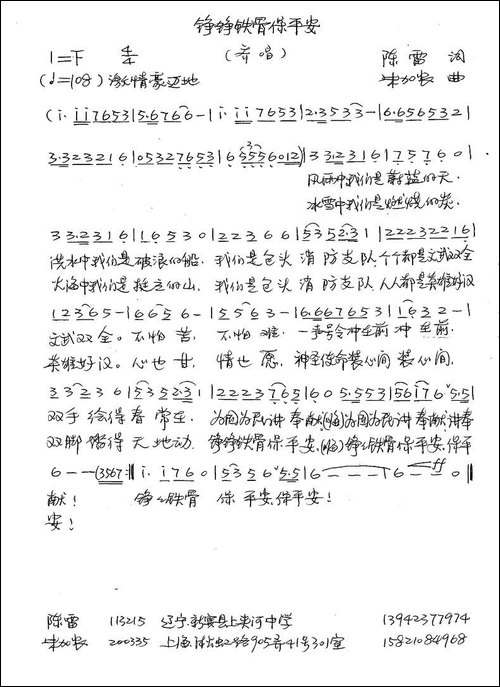 铮铮铁骨保平安
(齐唱)
1=F 2/4 陈雷 词
(♩=108) 激情豪迈地 朱加农 曲
(i· i i 7 6 5 3 | 5·6 7 6 6 - | i· i i 7 6 5 3 | 2·3 5 3 3 - | 6·6 5 6 5 3 2 |
3·3 2 3 2 1 6 | 0 5 3 2 7 6 5 3 | 6 5 5 5 6 0 1 2) | 3 3 2·3 1 6 | 7 5 7 6 0 |
风雨中我们是蔚蓝的天.
冰雪中我们是燃烧的炭.
3 3 2·3 1 6 | 1 6 5 3 0 | 2 2 3 6 6 | 5 3 5 2·3 1 | 2 2 2 3 2 2 1 6 |
洪水中我们是破浪的船. 我们是包头 消防支队,个个都是文武双全
大海中我们是挺立的山. 我们是包头 消防支队,人人都是英雄好汉
1 2 3 6 5 - | 6 6 5 6 - | 5 5 6 3 - | 6·6 6 7 6 5 3 | 1 6 3 2 - |
文武双全。不怕苦, 不怕难, 一声号令冲在前 冲在前.
英雄好汉。心也甘, 情也愿, 神圣使命装心间 装心间.
3 3 2 3 6 | 5 3 5 2·3 1 | 2 2 2 3 7 6 5 | 6 0 5·5 5 3 | 5 6 i 7 6 5·5 |
双手绘得春常在, 为国为民讲奉献,(嗨)为国为民讲奉献,讲奉
双脚踏得天地动. 铮铮铁骨保平安,(嗨)铮铮铁骨保平安,保平
6 - - (3 5 6 7 :‖ i· i 7 6 0 | 5 3 5 6 5·5 | 6 - - - | 6 - - 0 ‖
ff
献! 铮铮铁骨 保平安,保平安!
安!
陈雷 113215 辽宁新宾县上夹河中学 13942377974
朱加农 200335 上海 905弄41号301室 15821084968